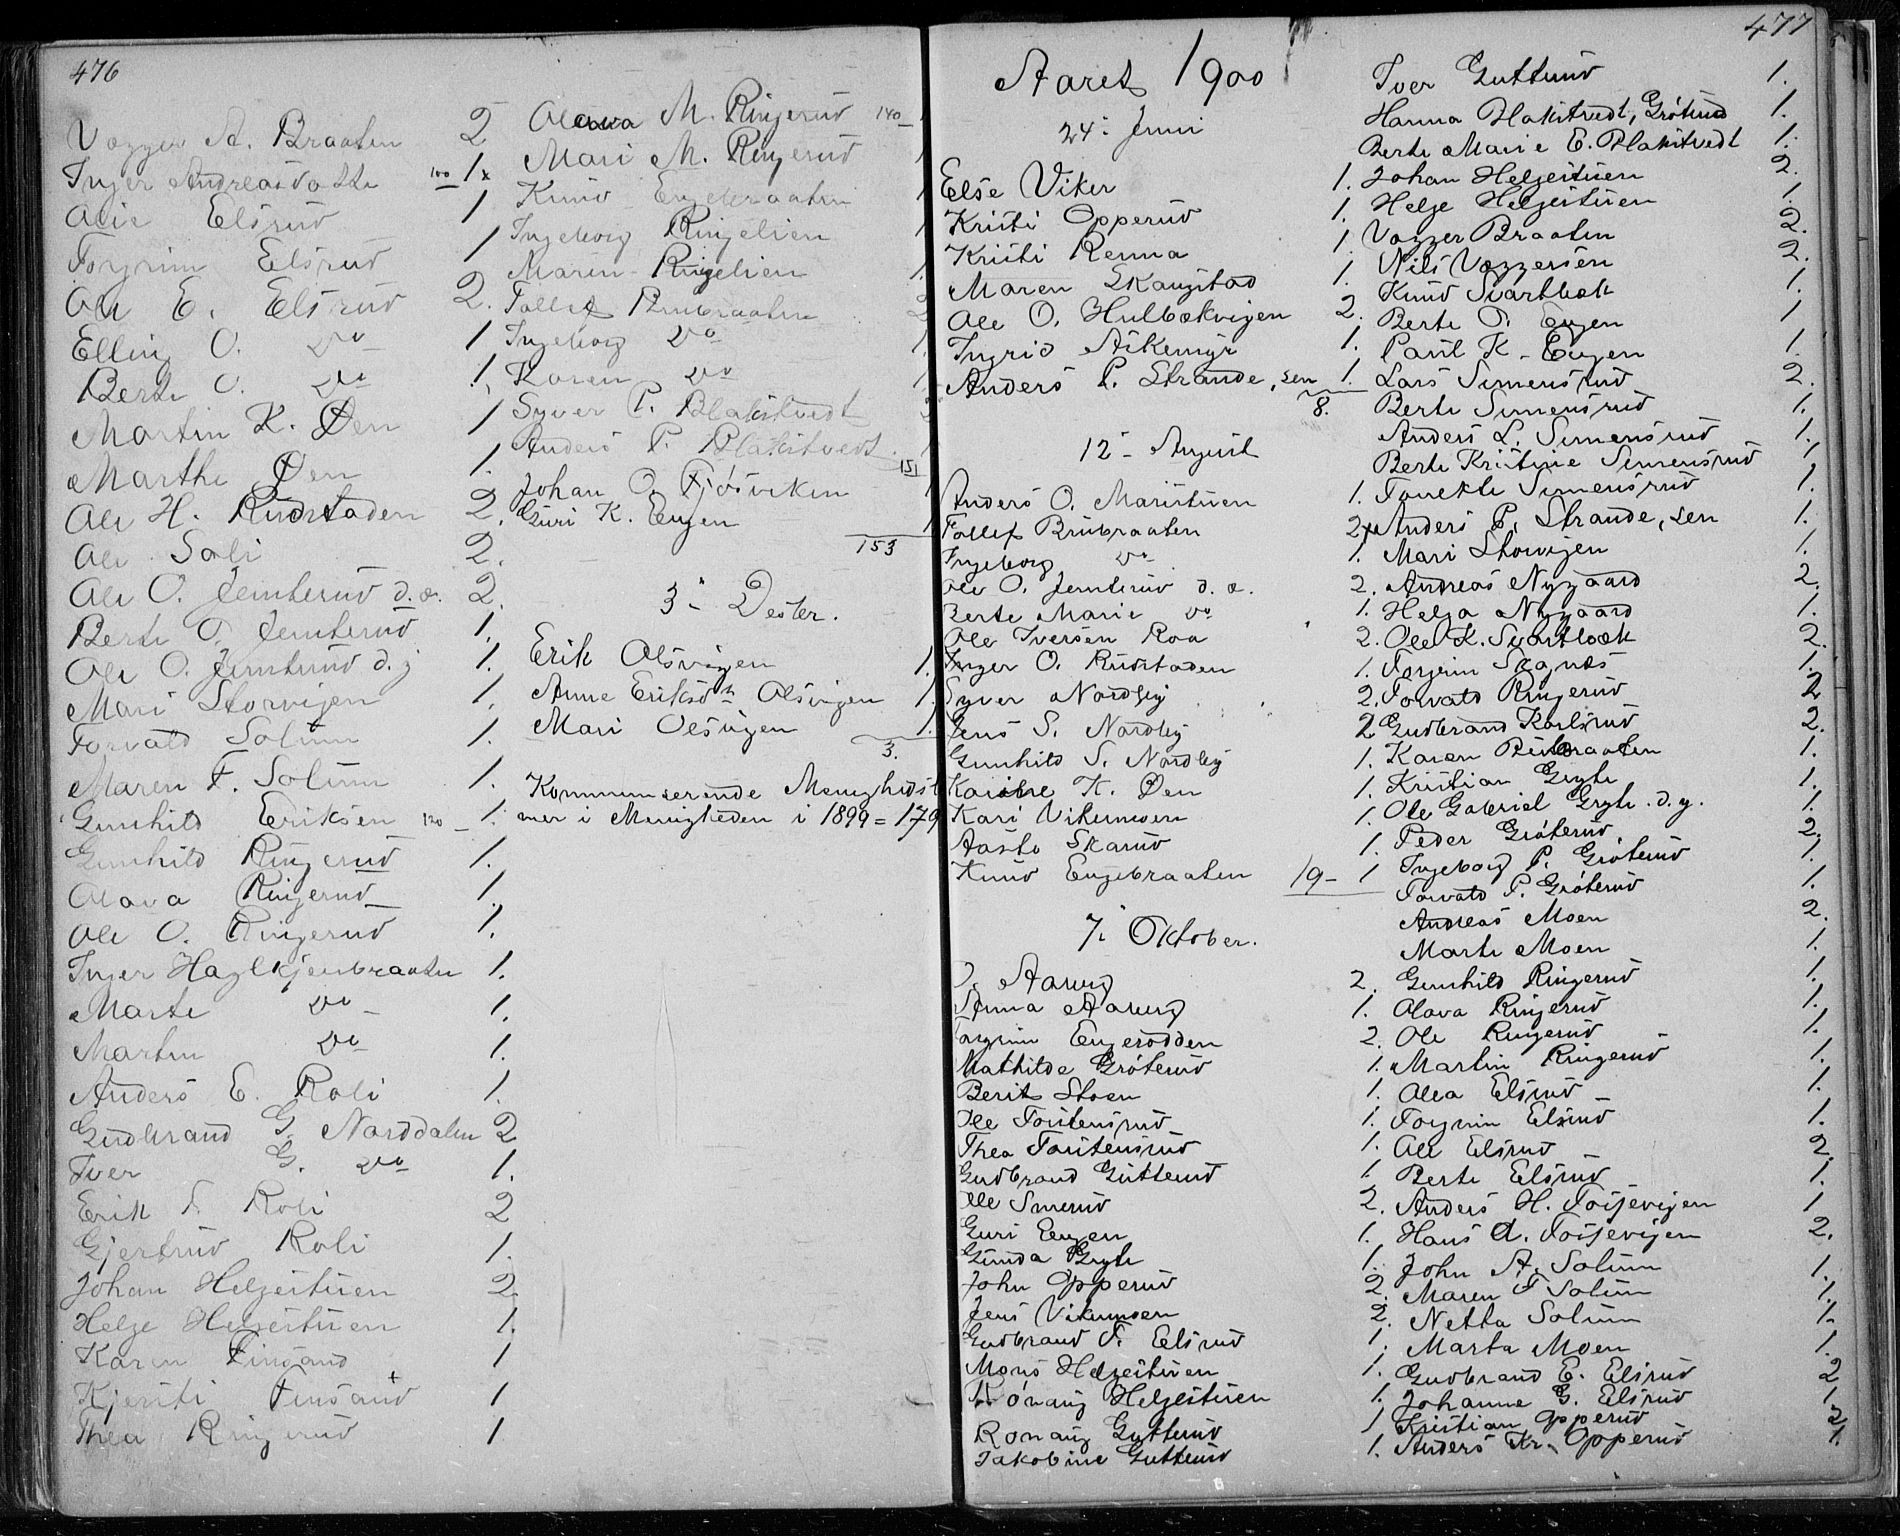 476
Vagger A. Braaten 2
Inger Andreasdatte 100 1x
Olia Elsrud 1
Torgrim Elsrud 1
Ole E. Elsrud 2.
Elling O. do 1
Berte O. do 1.
Martin K. Øen 1
Marthe Øen 1.
Ole H. Rudstaden 2.
Ole Soli 2.
Ole O. Jemterud d. æ. 2.
Berte O. Jemterud 1.
Ole O. Jemterud d. y 1.
Mari Storvigen 1.
Torvald Solum 1.
Maren T. Solum 1.
Gunhild Eriksen 120 1.
Gunhild Ringerud 1.
Olava Ringerud 1.
Ole O. Ringerud 1.
Inger Haglkjernbraaten 1.
Marte do 1.
Martin do 1.
Anders E. Roli 1.
Gudbrand G. Norddalen 2
Iver G. do 1.
Erik Roli 2
Gjertrud Roli 1.
Johan Helgeituen 2.
Helge Helgeituen 1.
Karen Finsand 1
Kjersti Finsand 1
Thea Ringerud 1
Olava M. Ringerud 140 1
Mari M. Ringerud 1
Knud Engebraaten 1
Ingeborg Ringelien 1
Maren Ringelien 1.
Tollef Brubraaten 2
Ingeborg do 1.
Karen do 1.
Syver P. Blakstvedt
Anders P. Blakstvedt 151
Johan O. Fjøsviken 1
Guri K. Eugen 1
153
3 - Dester.
Erik Olsvigen 1.
Anne Eriksdtr Olsvigen 1.
Mari Olsvigen 1.
3.
Kommunicerende Menighedslem
mer i Menigheden i 1899 = 179
477
Aaret 1900
24. Juni
Else Viker 1.
Kristi Opperud 1.
Kristi Renna 1.
Maren Skaugstad 1.
Ole O. Hulbækvigen 2.
Ingrid Aikemyr 1.
Anders P. Strande, sen 1.
8.
12 - August
Anders O. Maristuen 1.
Tollef Brubraaten 2
Ingeborg do 1.
Ole O. Jemterud d. æ. 2.
Berte Marie do 1.
Ole Iversen Roa 2.
Inger O. Rudstaden 1.
Syver Nordby 2.
Jens S. Nordby 2
Gunhild S. Nordby 1.
Kaisne K. Øen 1.
Kari Vikumoen 1.
Aaste Skarud 1.
Knud Engebraaten 19 - 1
7. Oktober.
O. Aarug 2.
Anna Aarug 1.
Torgrim Engerodden 2.
Mathilde Grøterud 1.
Berit Stoen 1.
Ole Tostensrud 1.
Thea Tostensrud 1.
Gudbrand Gutterud 1
Ole Smerud 2.
Guri Eugen 1.
Gunda Gryte 1.
John Opperud 2.
Jens Vikumoen 2.
Gudbrand T. Elsrud 1.
Mons Helgeituen 1.
Rónaug Helgeituen 1.
Ronaug Gutterud 1
Jakobine Gutterud 1.
Iver Gutterud 1.
Hanna Blakstvedt, Grøterud 1.
Berte Marie E. Blakstvedt 1.
Johan Helgeituen 2.
Helge Helgeituen 1.
Vagger Braaten 2.
Nils Vaggersen 2.
Knud Svartbæk 1.
Berte P. Eugen 1
Paul K. Eugen 1.
Lars Simensrud 2.
Berte Simensrud 1.
Anders L. Simensrud 1.
Berte Kristine Simensrud 1
Tonette Simensrud 1.
Anders P. Strande, sen 1.
Mari Storvigen 1.
Andreas Nygaard 2.
Helga Nygaard 1.
Ole K. Svartbæk 2.
Torgrim Sognæs 1.
Torvald Ringerud 2
Gudbrand Karlsrud 2.
Karen Brubraaten 1.
Kristian Gryte 1.
Ole Gabriel Gryte d. y. 1.
Peder Grøterud 2.
Ingeborg P. Grøterud 1.
Torvald P. Grøterud 1.
Andreas Moen 2.
Marte Moen 1.
Gunhild Ringerud 1.
Olava Ringerud 1.
Ole Ringerud 1.
Martin Ringerud 1.
Olea Elsrud 1.
Torgrim Elsrud 1.
Ole Elsrud 2.
Berte Elsrud 1.
Anders H. Tossevigen 1
Hans A. Tossevigen 2.
John A. Solum 1.
Maren T Solum 1.
Netta Solum 1.
Marta Moen 1.
Gudbrand E. Elsrud 2
Johanne G. Elsrud 1
Kristian Opperud 2
Anders Kr. Opperud 1.